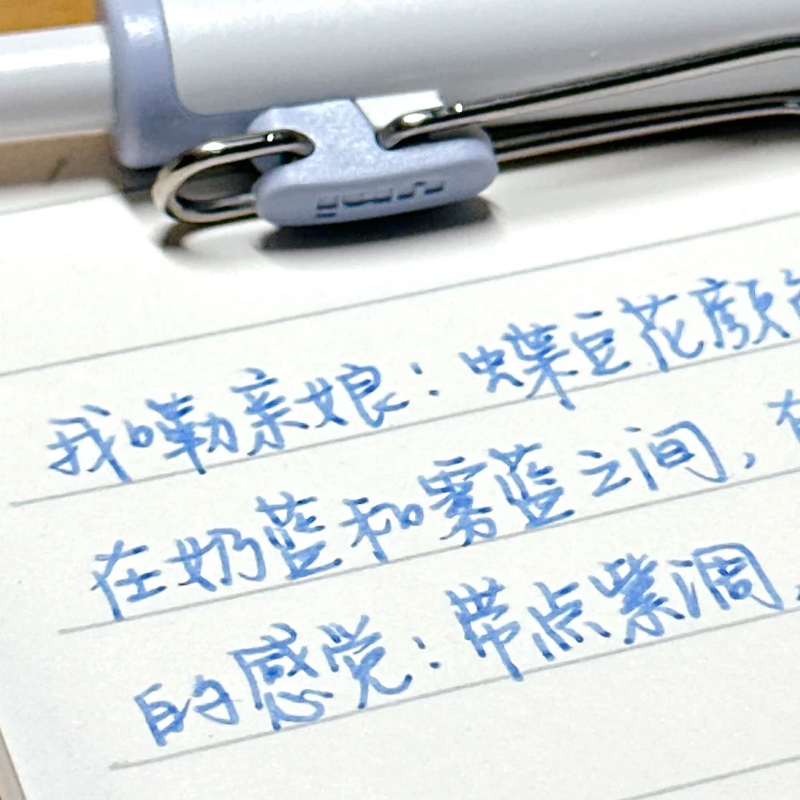 uni
我嘞亲娘：蝶豆花颜
在奶蓝和雾蓝之间，有
的感觉：带点紫调，